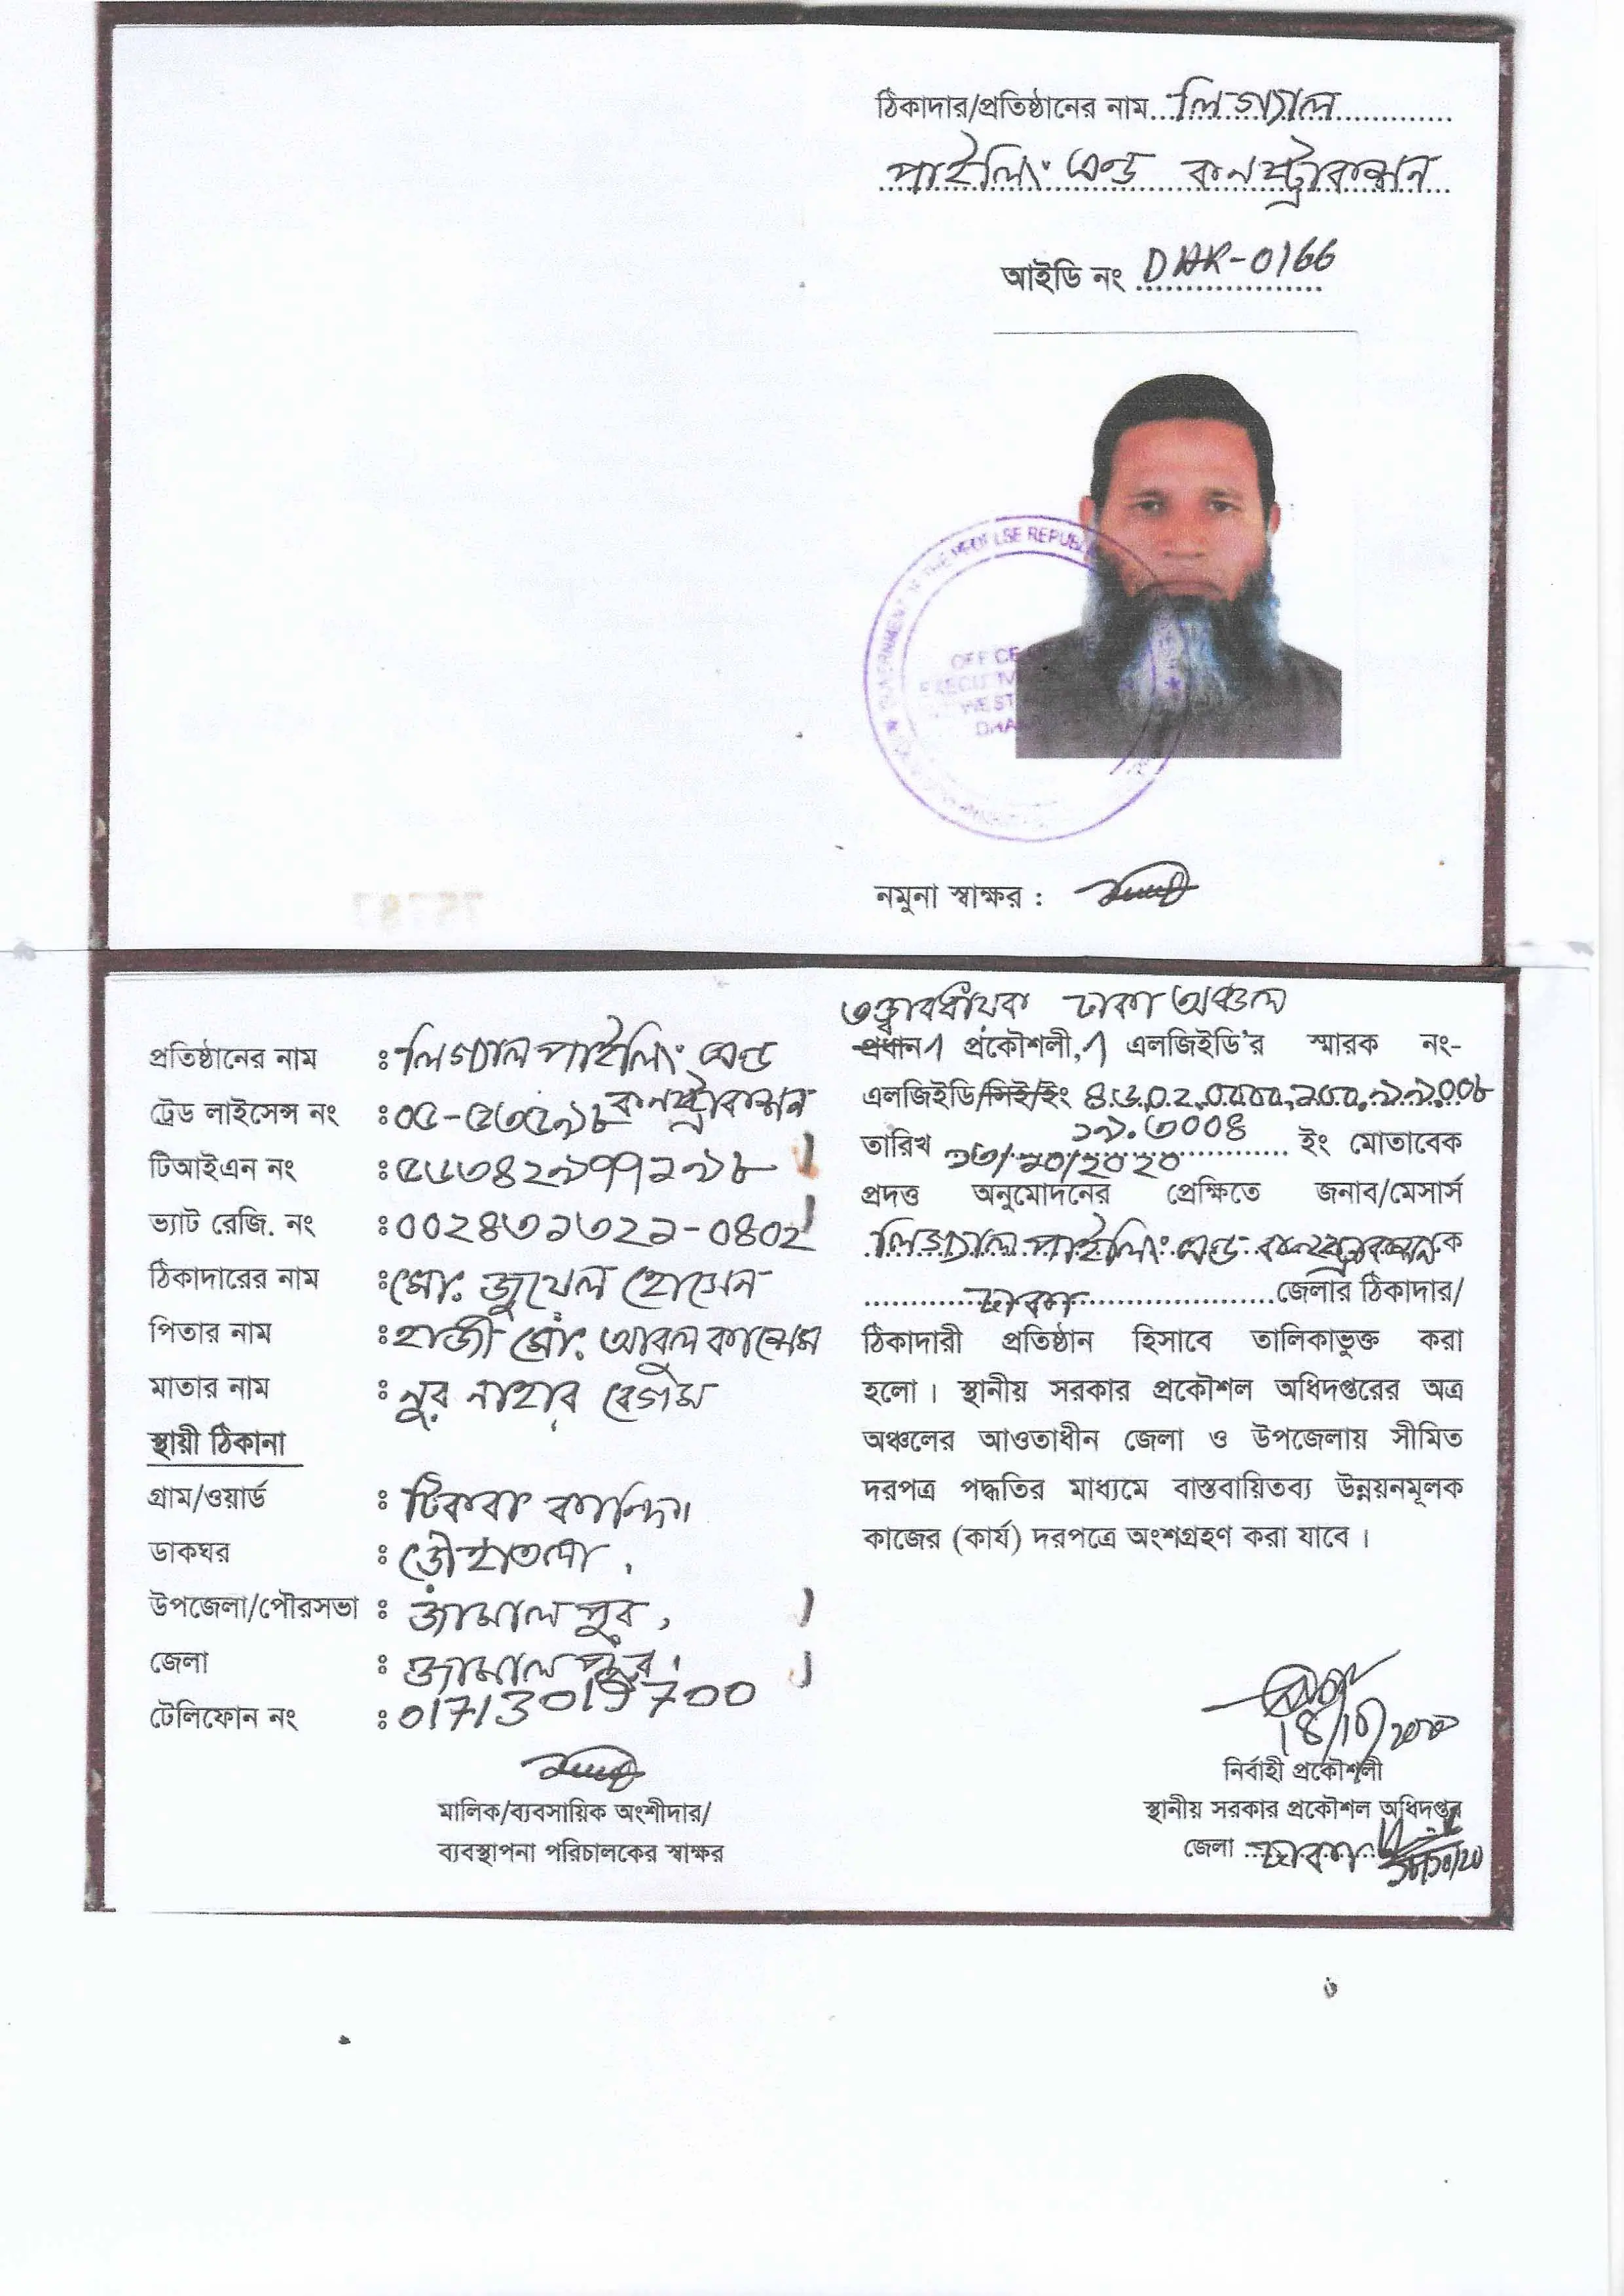 ঠিকাদার/প্রতিষ্ঠানের নাম লিগ্যাল
পাইলিং এন্ড কনস্ট্রাকশন
আইডি নং DHK-0166
GOVERNMENT OF THE PEOPLES REPUBLIC
OFFICE
EXECUTIVE
WEST
DHAKA
নমুনা স্বাক্ষর :
প্রতিষ্ঠানের নাম : লিগ্যাল পাইলিং এন্ড
কনস্ট্রাকশন
ট্রেড লাইসেন্স নং : ০৫-৫৩৫৯৮
টিআইএন নং : ৫৬৩৪২৯৭৭১৯৮
ভ্যাট রেজি. নং : ০০২৪৩১৩২১-০৪০২
ঠিকাদারের নাম : মো. জুয়েল হোসেন
পিতার নাম : হাজী মো. আবুল কাশেম
মাতার নাম : নুর নাহার বেগম
স্থায়ী ঠিকানা
গ্রাম/ওয়ার্ড :
ডাকঘর :
উপজেলা/পৌরসভা : জামালপুর,
জেলা : জামালপুর।
টেলিফোন নং : 01713015700
মালিক/ব্যবসায়িক অংশীদার/
ব্যবস্থাপনা পরিচালকের স্বাক্ষর
তত্ত্বাবধায়ক ঢাকা অঞ্চল
প্রধান প্রকৌশলী, এলজিইডি'র স্মারক নং-
এলজিইডি/সিই/ইং ৪৬.০২.০০০০.২০০.৯৯.০০৮
১৯.৩০০৪
তারিখ ১৩/১০/২০২০ ইং মোতাবেক
প্রদত্ত অনুমোদনের প্রেক্ষিতে জনাব/মেসার্স
লিগ্যাল পাইলিং এন্ড কনস্ট্রাকশন কে
ঢাকা জেলার ঠিকাদার/
ঠিকাদারী প্রতিষ্ঠান হিসাবে তালিকাভুক্ত করা
হলো। স্থানীয় সরকার প্রকৌশল অধিদপ্তরের অত্র
অঞ্চলের আওতাধীন জেলা ও উপজেলায় সীমিত
দরপত্র পদ্ধতির মাধ্যমে বাস্তবায়িতব্য উন্নয়নমূলক
কাজের (কার্য) দরপত্রে অংশগ্রহণ করা যাবে।
নির্বাহী প্রকৌশলী
স্থানীয় সরকার প্রকৌশল অধিদপ্তর
জেলা ঢাকা